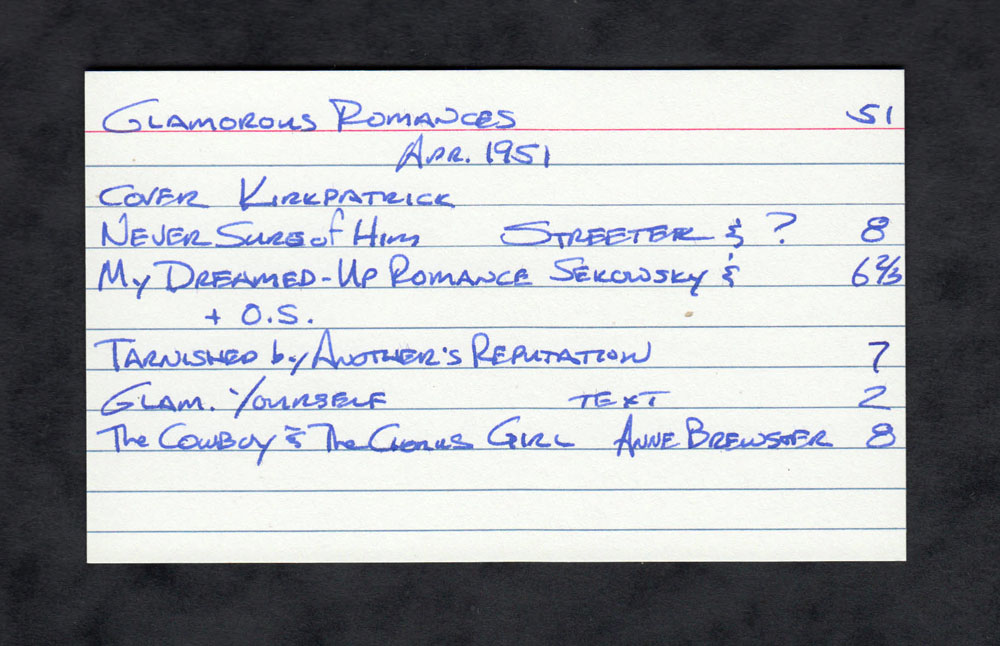 Glamorous Romances 51
Apr. 1951
Cover Kirkpatrick
Never Sure of Him Streeter & ? 8
My Dreamed-Up Romance Sekowsky & 6 2/3
+ O.S.
Tarnished by Another's Reputation 7
Glam. Yourself text 2
The Cowboy & The Chorus Girl Anne Brewster 8